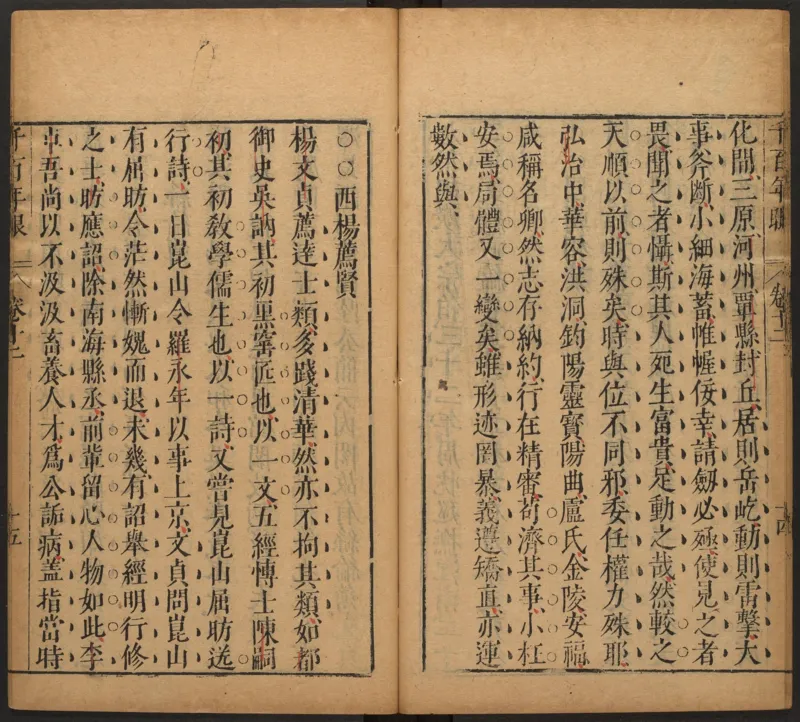 千百年眼 卷十二 十四
化間三原河州單縣封丘居則岳屹動則雷擊大
事斧斷小細海蓄惟幄佞幸請劒必殛使見之者
畏聞之者懾斯其人死生富貴足動之哉然較之
天順以前則殊矣時與位不同邪委任權力殊耶
弘治中華容洪洞鈞陽靈寳陽曲盧氏金陵安福
咸稱名卿然志存納約行在精審苟濟其事小枉
安焉局體又一變矣雖形迹罔暴義遵矯直亦運
數然與
○○西楊薦賢
楊文貞薦達士類多踐清華然亦不拘其類如都
御史吳訥其初黑窰匠也以一文五經愽士陳嗣
初其初敎學儒生也以一詩又嘗見崑山屈昉送
行詩一日崑山令羅永年以事上京文貞問崑山
有屈昉令茫然慚媿而退未幾有詔舉經明行修
之士昉應詔除南海縣丞前軰留心人物如此李
卓吾尚以不汲汲畜養人才爲公詬病蓋指當時
千百年眼 卷十二 十五